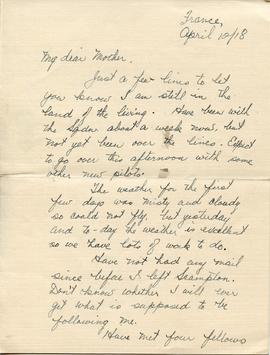 France,
April 12/18
My dear Mother.
Just a few lines to let
you know I am still in the
land of the living. Have been with
the Sqdn about a week now, but
not yet been over the lines. Expect
to go over this afternoon with some
other new pilots.
The weather for the first
few days was misty and cloudy
so could not fly, but yesterday
and to-day the weather is excellent
so we have lots of work to do.
Have not had any mail
since before I left Scampton.
Don't know whether I will ever
get what is supposed to be
following me.
Have met four fellows